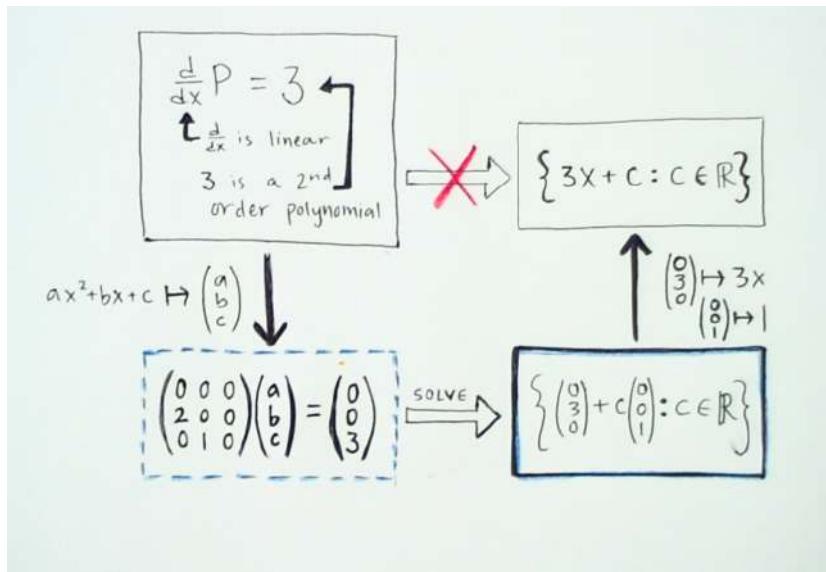 d/dx P = 3
d/dx is linear
3 is a 2nd
order polynomial
{3x + c : c ∈ ℝ}
ax²+bx+c ↦ (a b c)
(0 3 0) ↦ 3x
(0 0 1) ↦ 1
(0 0 0 / 2 0 0 / 0 1 0)(a b c) = (0 0 3)
SOLVE
{(0 3 0) + c(0 0 1) : c ∈ ℝ}